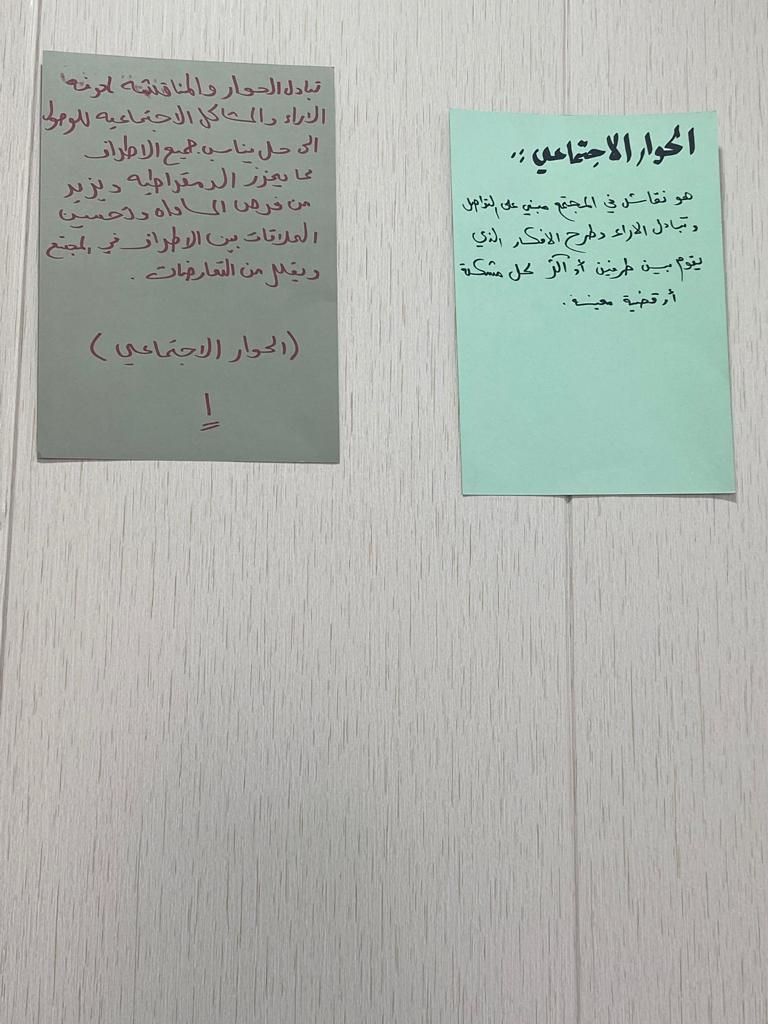 الحوار الاجتماعي :,
هو نقاش في المجتمع مبني على التواصل
و تبادل الاراء وطرح الافكار الذي
يقوم بين طرفين أو اكثر لحل مشكلة
أو قضية معينة.
تبادل الحوار والمناقشه لمعرفة
الاراء والمشاكل الاجتماعيه للوصول
الى حل يناسب جميع الاطراف
مما يعزز الدمقراطيه ويزيد
من فرص المساواه وتحسين
العلاقات بين الاطراف في المجتمع
ويقلل من التعارضات .
(الحوار الاجتماعي)
ا